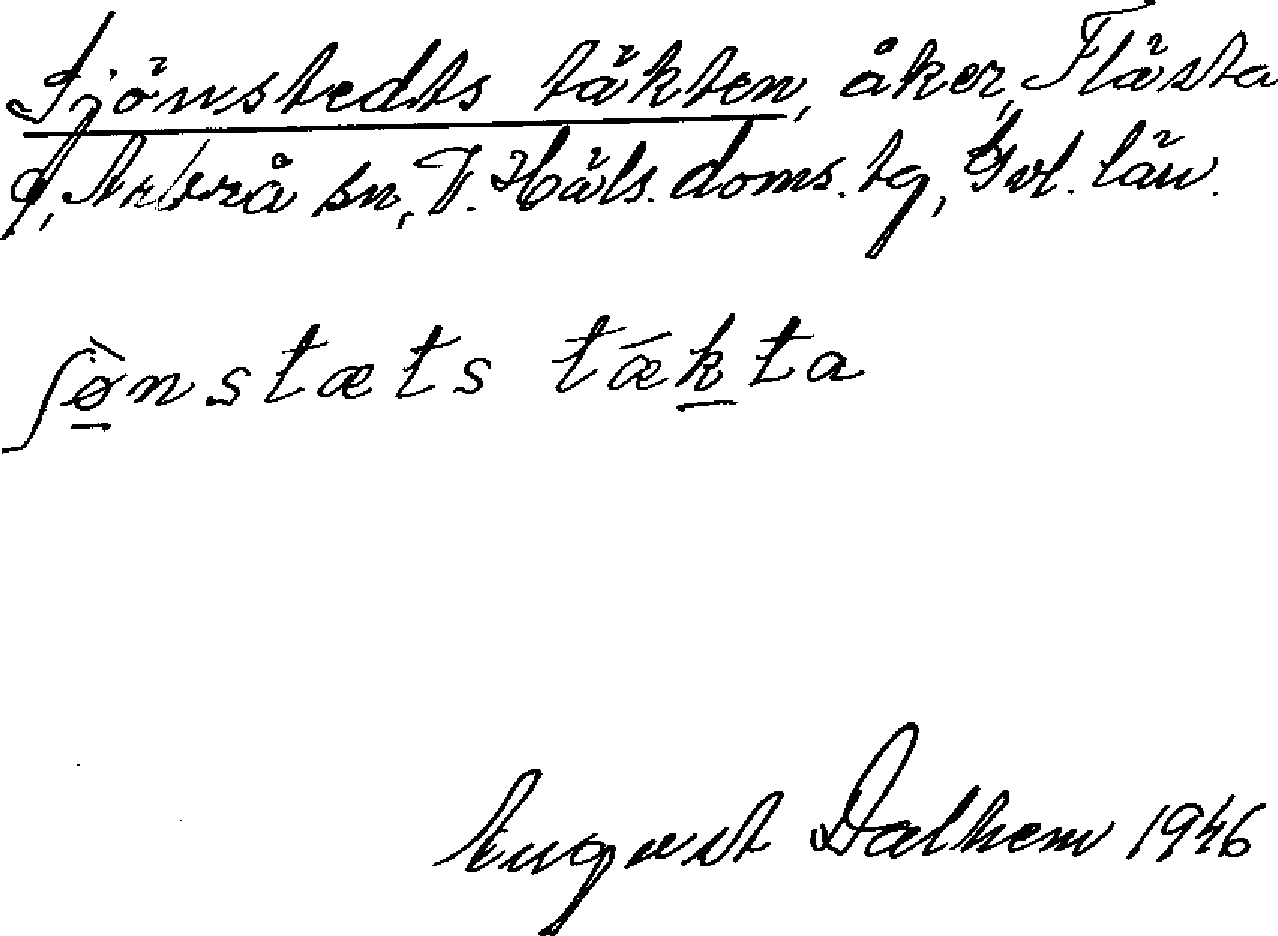 Sjönstedts täkten, åker, Flästa
Arbrå sn, V. Häls. doms. tg, Gvl. län.
ʃø̀nstæts tǽkta
August Dalhem 1946